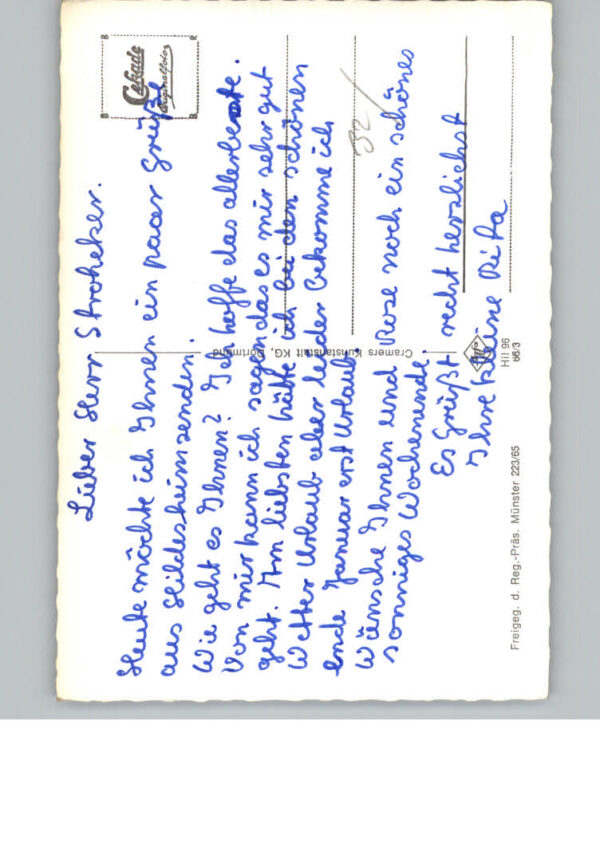 Lieber Herr Stroheker.
Heute möchte ich Ihnen ein paaar Grüße
aus Hildesheim senden.
Wie geht es Ihnen? Ich hoffe das allerbeste.
Von mir kann ich sagen das es mir sehr gut
geht. Am liebsten hätte ich bei den schönen
Wetter Urlaub aber leider bekomme ich
ende Januar erst Urlaub.
Wünsche Ihnen und Rose noch ein schönes
sonniges Wochenende.
Es Grüßt recht herzlichst
Ihre kleine Rita
Cekade
Originalfoto
32/
Cramers Kunstanstalt KG, Dortmund
Hil 96
66/3
Freigeg. d. Reg.-Präs. Münster 223/65